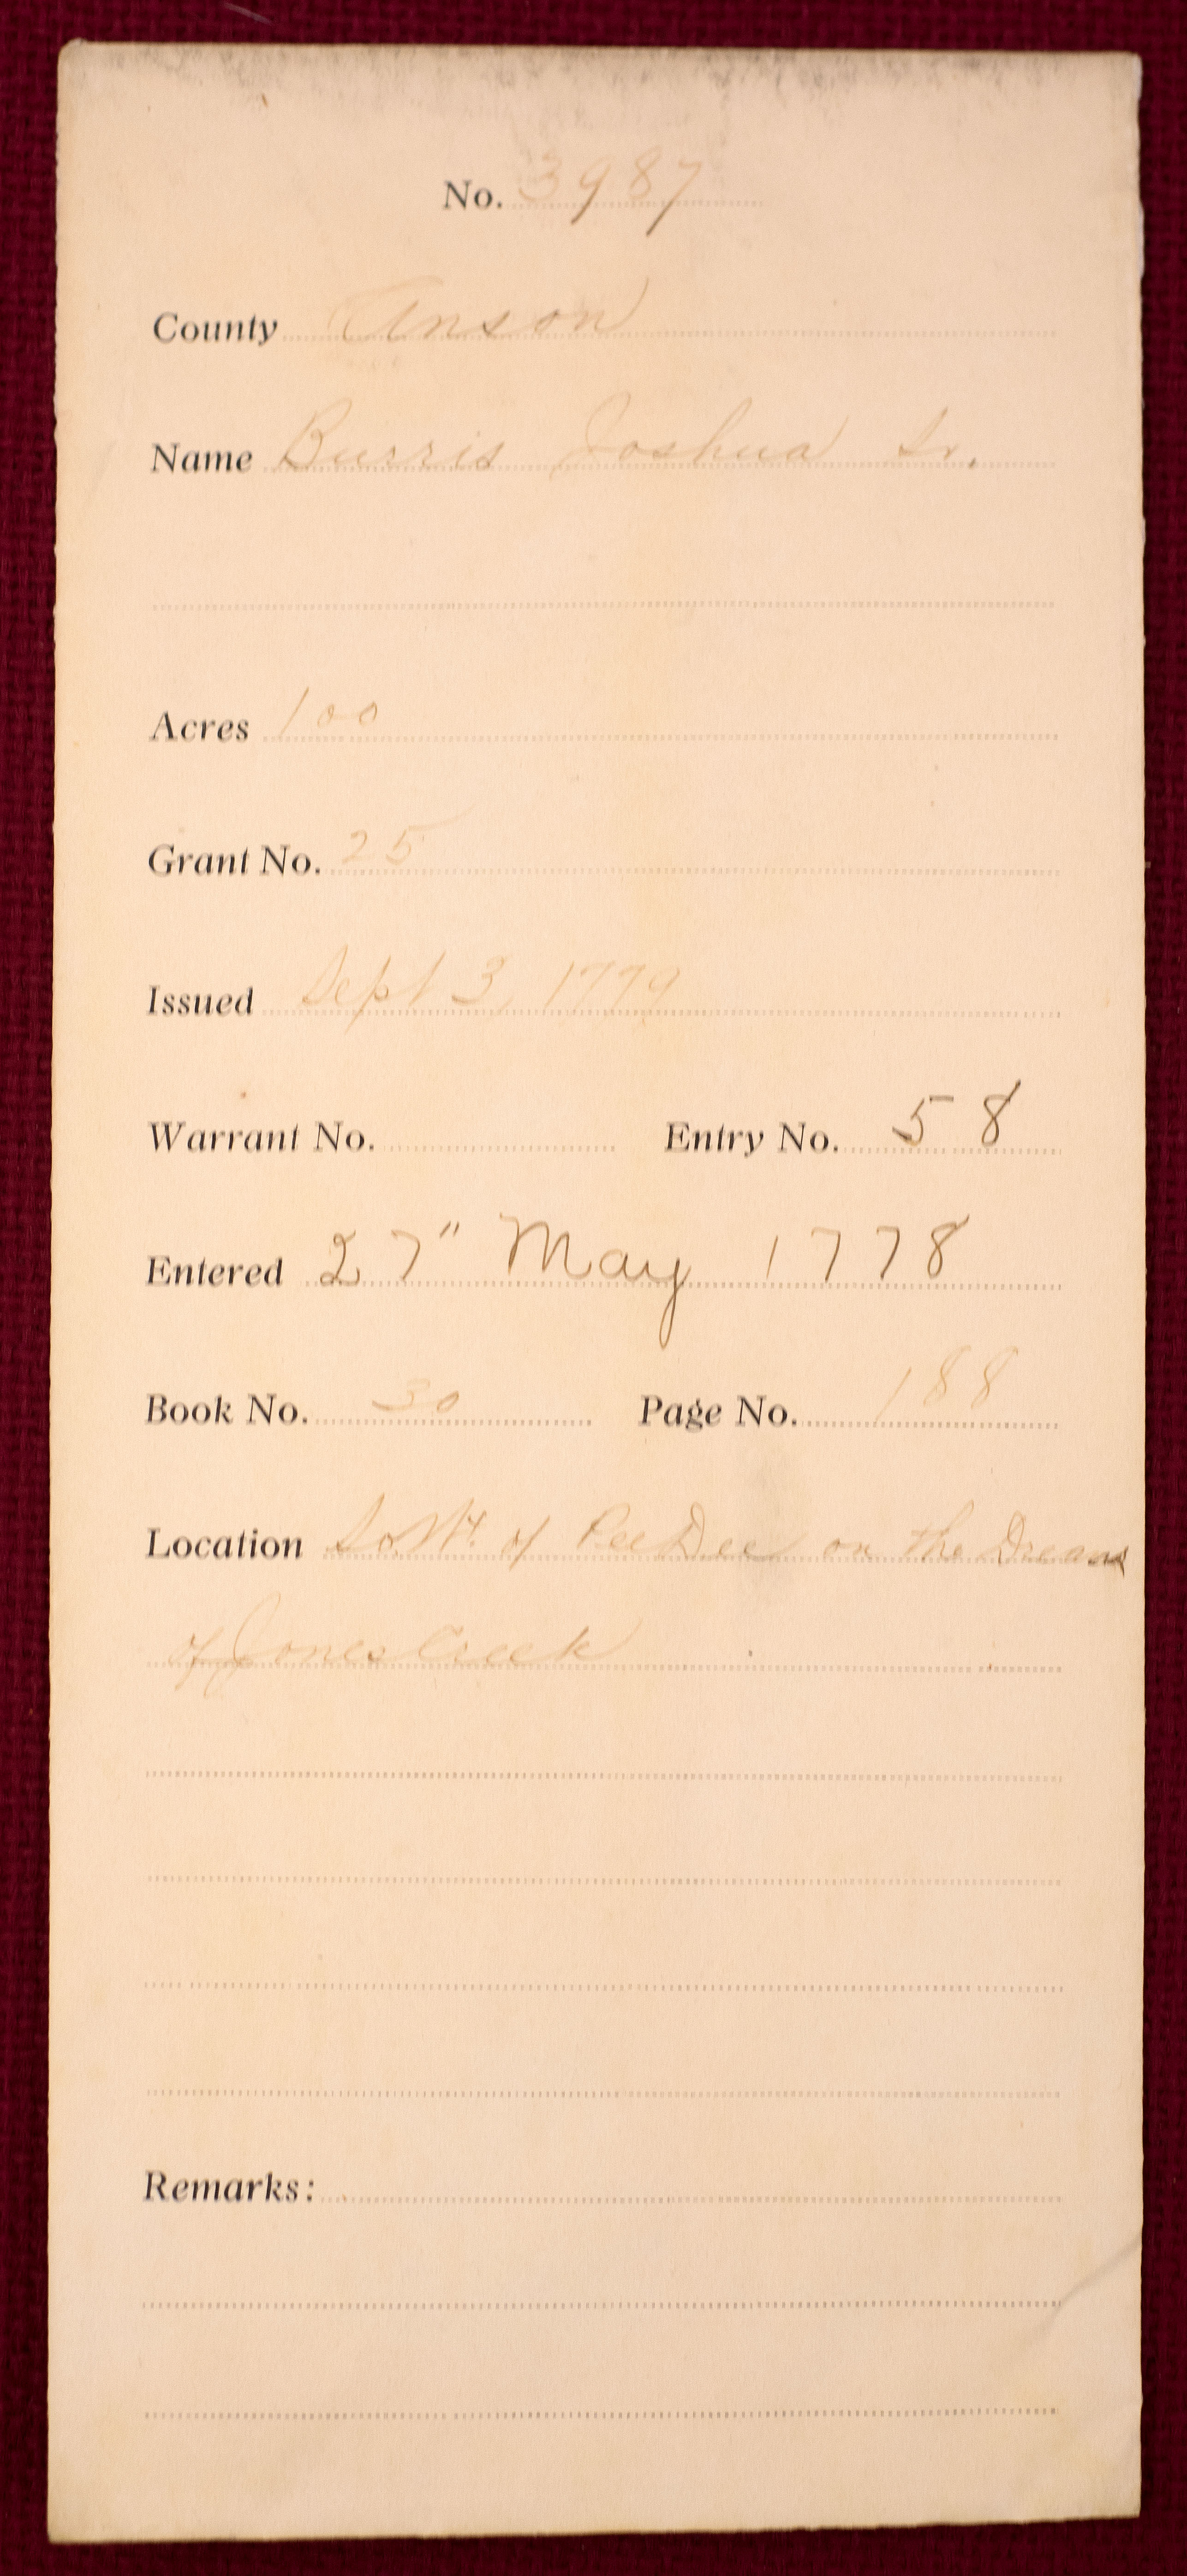 No. 3987
County Anson
Name Burris Joshua Sr.
Acres 100
Grant No. 25
Issued Sept 3, 1779
Warrant No. Entry No. 58
Entered 27" May 1778
Book No. 30 Page No. 188
Location So.Wt. of PeeDee on the Dreans
of Jones Creek
Remarks: